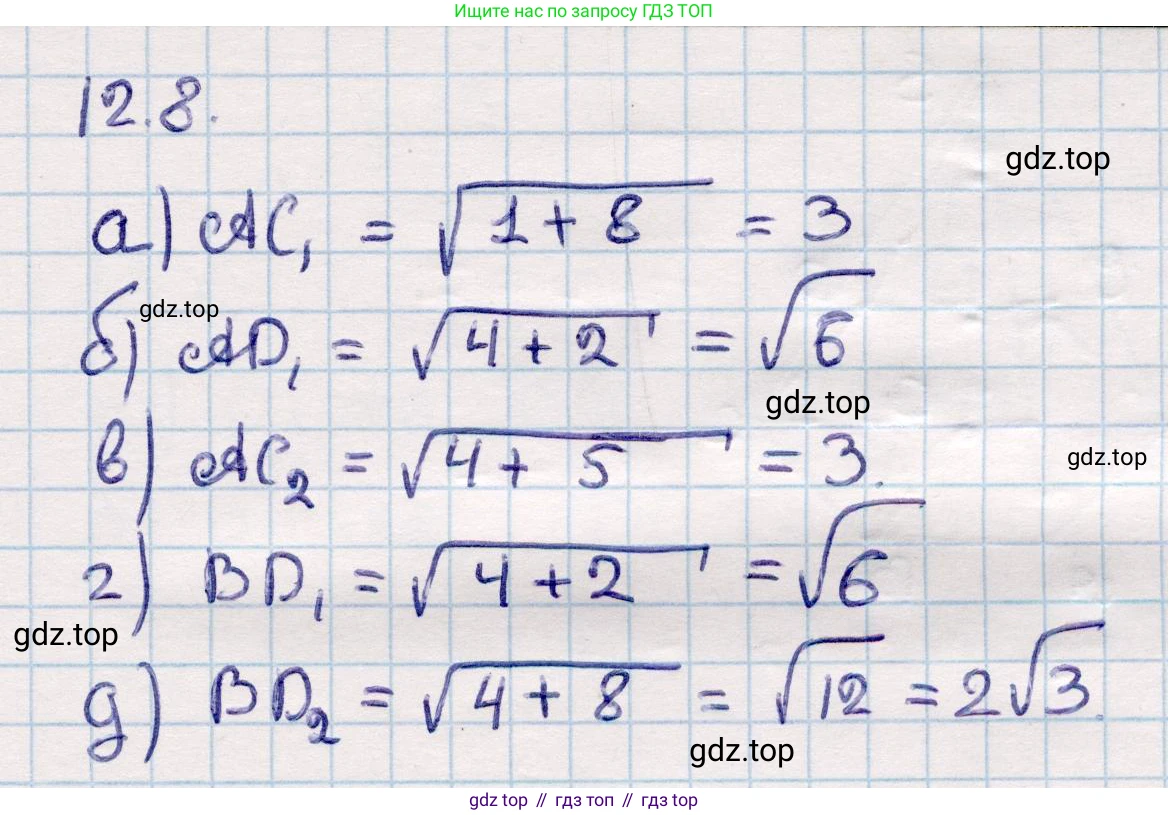 Ищите нас по запросу ГДЗ ТОП
12.8.
gdz.top
а) AC₁ = √(1 + 8) = 3
gdz.top
б) AD₁ = √(4 + 2) = √6
gdz.top
в) AC₂ = √(4 + 5) = 3.
gdz.top
г) BD₁ = √(4 + 2) = √6
gdz.top
д) BD₂ = √(4 + 8) = √12 = 2√3.
gdz.top
gdz top // гдз топ // гдз top